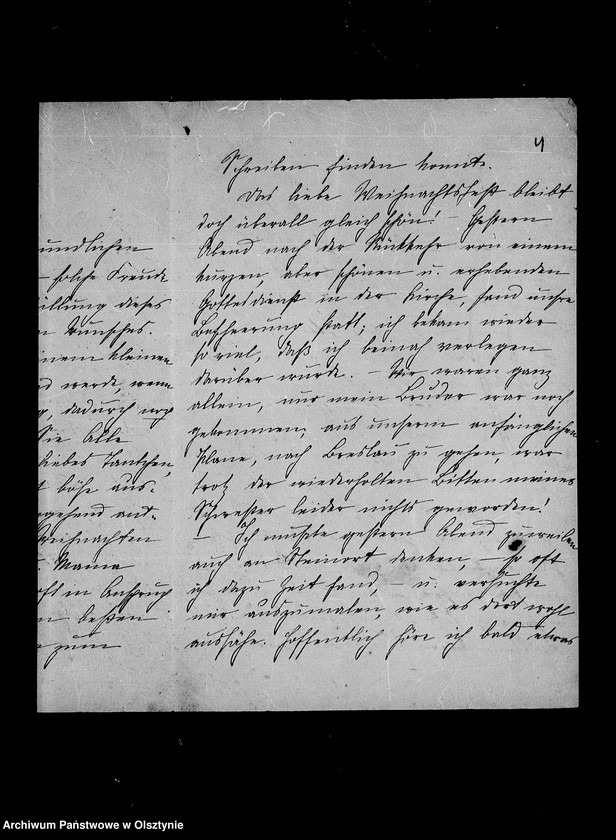 4
Schreiben finden konnte.
Das liebe Weihnachtsfest bleibt
doch überall gleich schön! – Gestern
Abend nach der Rückkehr von einem
kurzen, aber schönen u. erhebenden
Gottesdienst in der Kirche, fand unsre
Bescheerung statt; ich bekam wieder
so viel, daß ich beinah verlegen
darüber wurde. – Wir waren ganz
allein, nur mein Bruder war noch
gekommen; aus unserm anfänglichen
Plane, nach Breslau zu gehen, war
trotz der wiederholten Bitten meiner
Schwester leider nichts geworden!
– Ich mußte gestern Abend zuweilen
auch an Steinort denken, – so oft
ich dazu Zeit fand, – u. versuchte
mir auszumalen, wie es dort wohl
aussähe. Hoffentlich höre ich bald etwas
undlichen
– solche Freude
üllung dieses
n Wunsches.
inem kleinen
d werde, wenn
g, dadurch
Sie Alle
liebes Tantchen,
t böse aus.
gehend ant-
Weihnachten
Mama
oft in Anspruch
n besten
zum
Archiwum Państwowe w Olsztynie